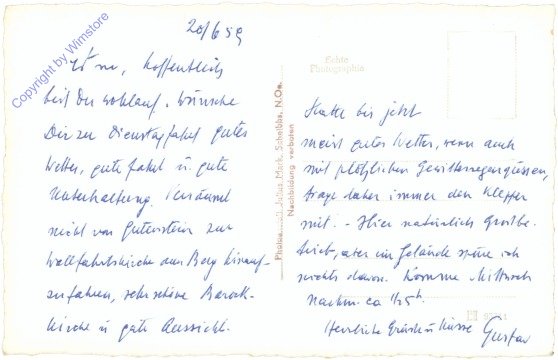 Copyright by Wimstore
20/6 59
hoffentlich
bist Du wohlauf. Wünsche
Dir zu Dienstagfahrt gutes
Wetter, gute Fahrt u. gute
Unterhaltung. Versäumt
nicht von Gutenstein zur
Wallfahrtskirche am Berg hinauf-
zufahren, sehr schöne Barock-
kirche u gute Aussicht.
Photo Julius Mark, Scheibbs, N.Oe.
Nachbildung verboten
Echte
Photographie
Hatte bis jetzt
meist gutes Wetter, wenn auch
mit plötzlichen Gewitterregengüssen,
trage daher immer den Klepper
mit. - Hier natürlich Großbe-
trieb, aber im Gelände spüre ich
nichts davon. Komme Mittwoch
nachm. ca
Herzliche Grüße u Küsse Gustav